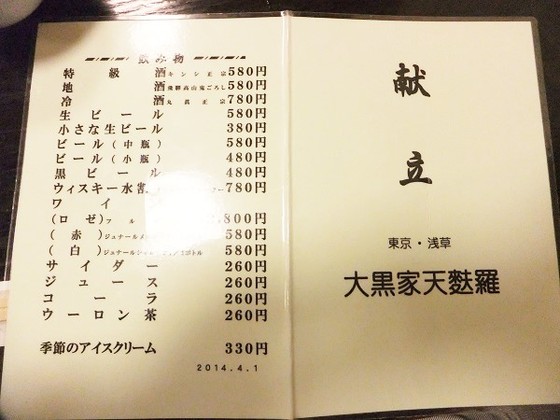 飲み物
特級酒 キンシ正宗 580円
地酒 飛騨高山鬼ごろし 580円
冷酒 丸眞正宗 780円
生ビール 580円
小さな生ビール 380円
ビール(中瓶) 580円
ビール(小瓶) 480円
黒ビール 480円
ウィスキー水割 780円
ワイ
(ロゼ) フル ,800円
(赤) ジュナール 580円
(白) ジュナール ボトル 580円
サイダー 260円
ジュース 260円
コーラ 260円
ウーロン茶 260円
季節のアイスクリーム 330円
2014.4.1
献立
東京・浅草
大黒家天麩羅